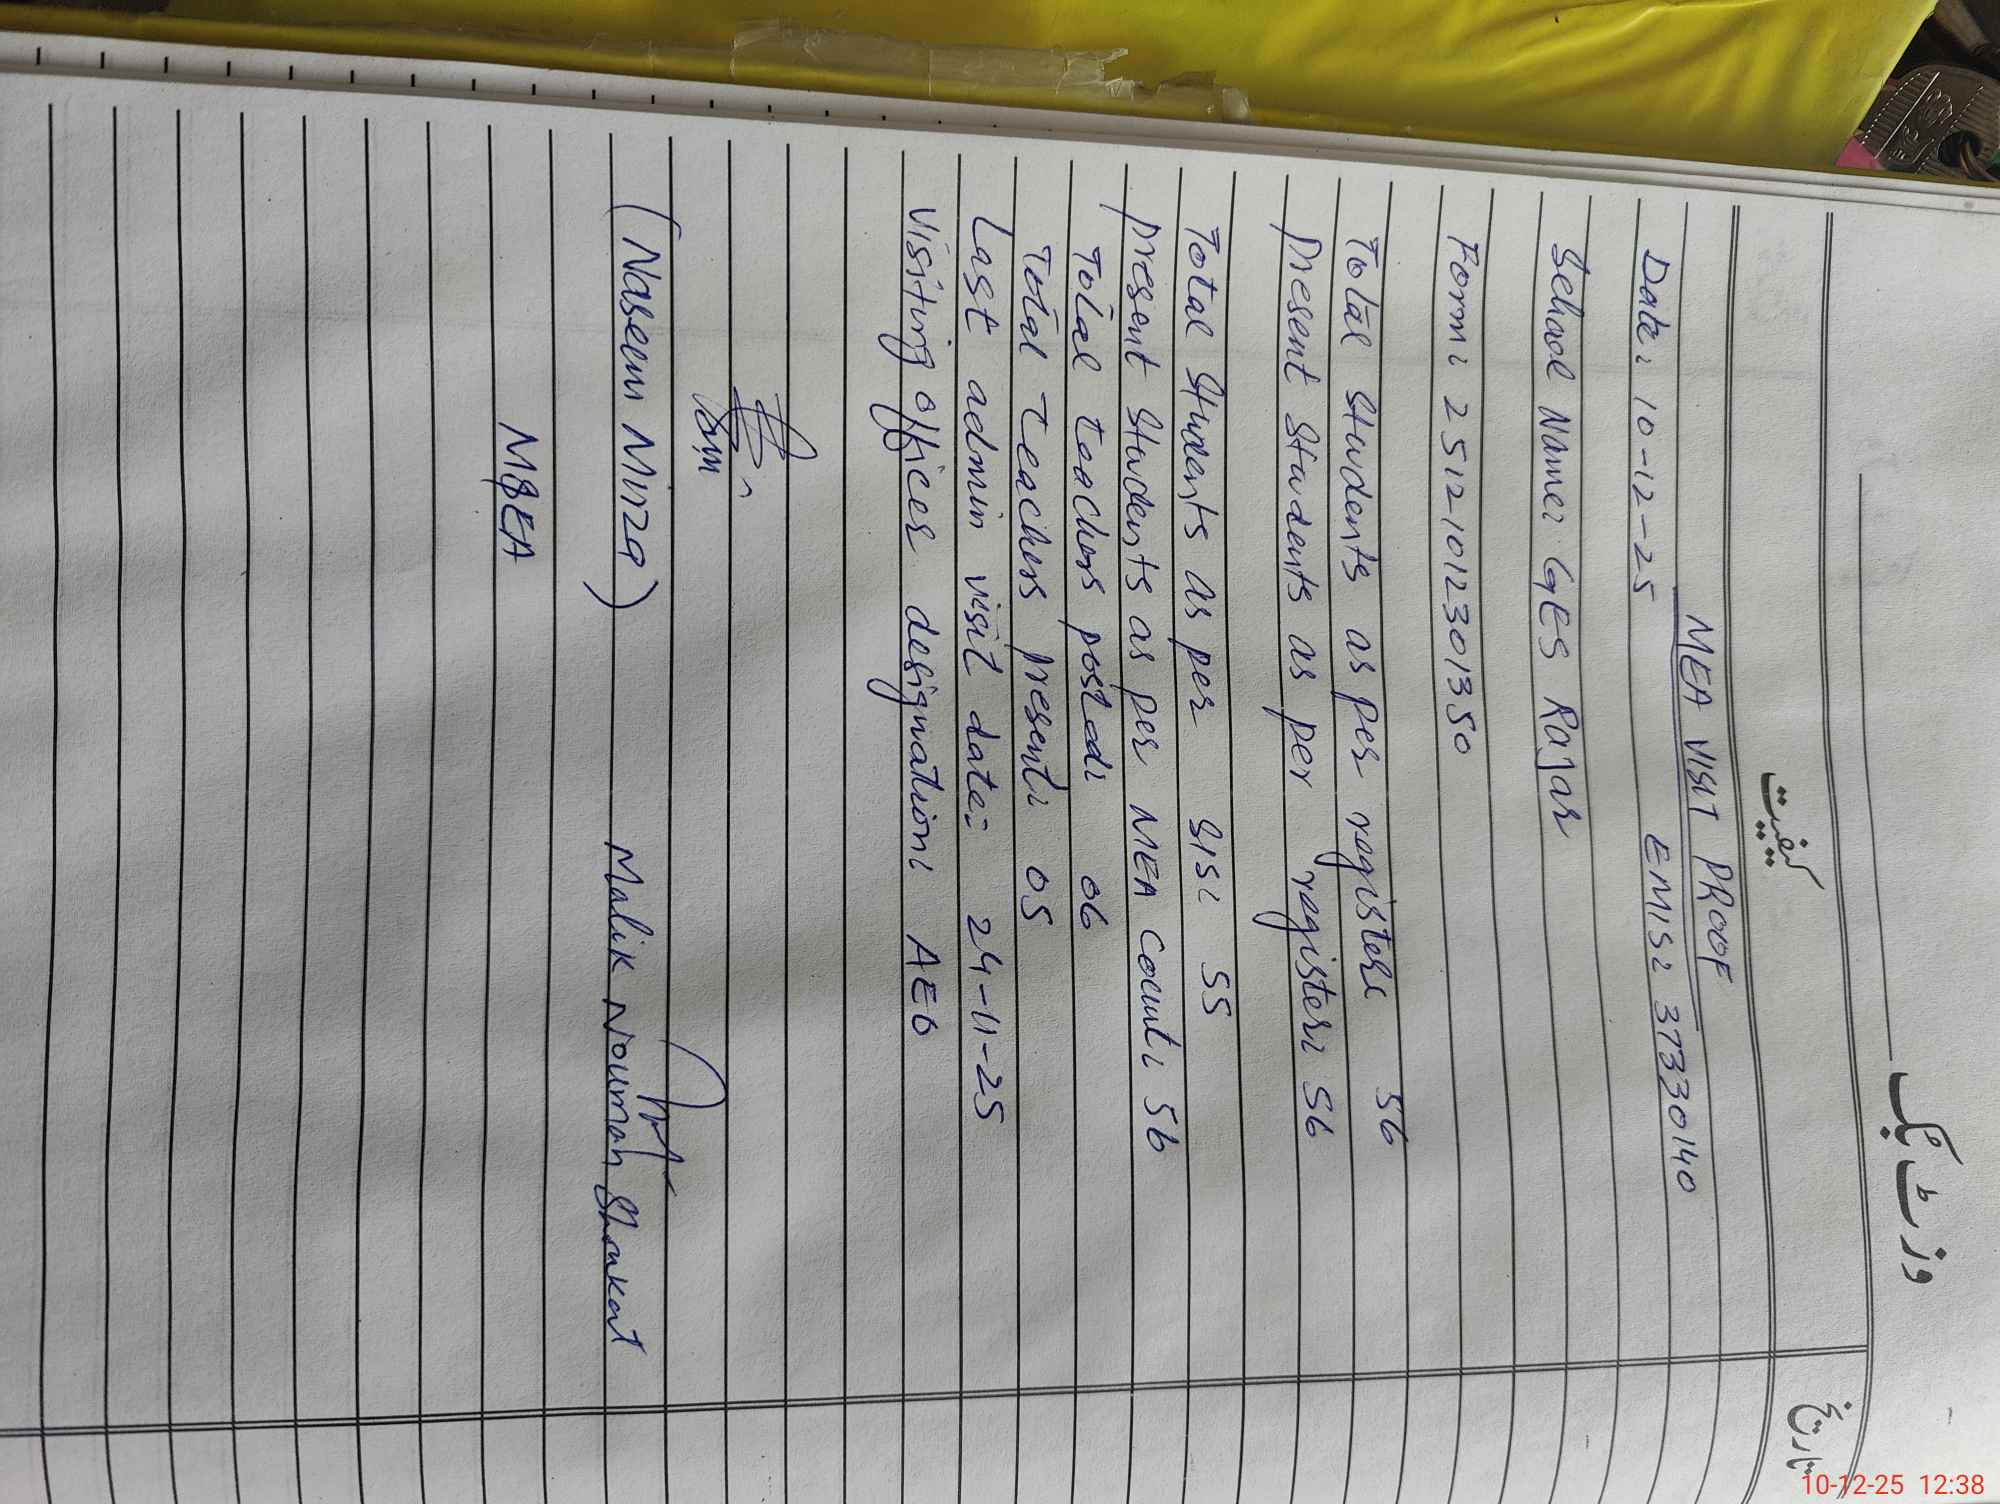 وزٹ بک
کیفیت
تاریخ
MEA VISIT PROOF
Date: 10-12-25 EMIS: 37330140
School Name: GES Rajar
Form: 25121012301350
Total Students as per register: 56
Present Students as per register: 56
Total Students as per SIS: 55
Present Students as per MEA Count: 56
Total teachers posted: 06
Total Teachers present: 05
Last admin visit date: 24-11-25
Visiting officer designation: AEO
(Naseem Mirza) Malik Nouman Shaukat
MEA
10-12-25 12:38